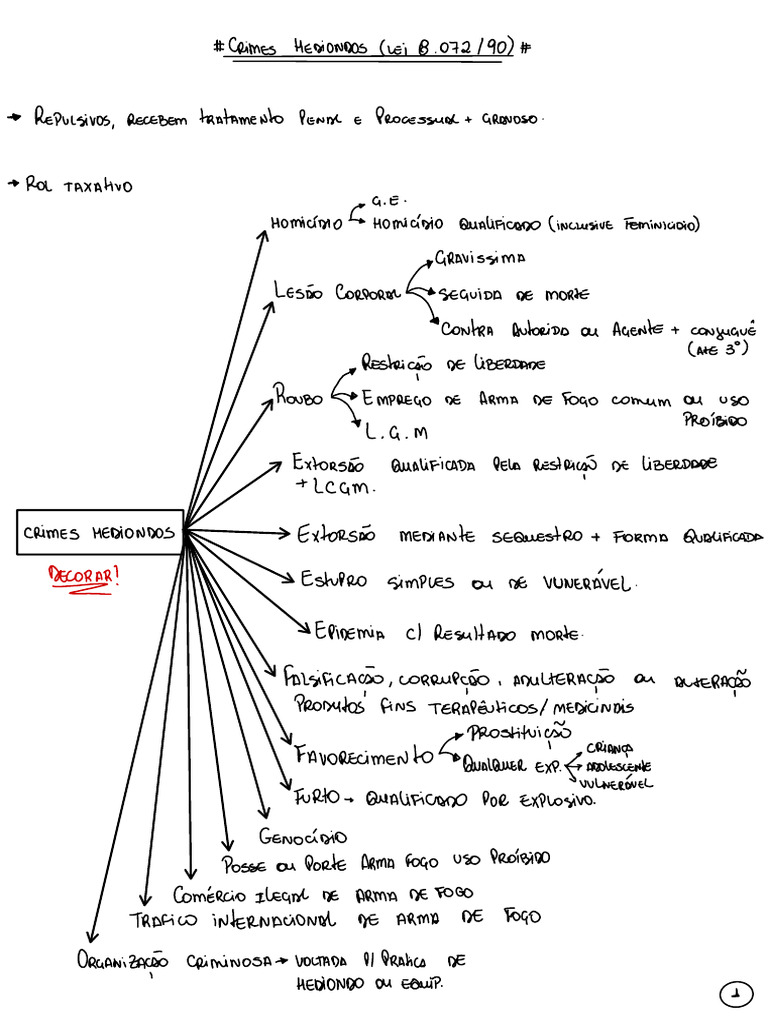 # Crimes Hediondos (Lei 8.072/90) #
→ Repulsivos, recebem tratamento penal e processual + gravoso.
→ Rol taxativo
G.E.
Homicídio → Homicídio qualificado (inclusive feminicídio)
Gravíssima
Lesão Corporal → Seguida de morte
Contra autorida ou agente + conjuguê
(até 3°)
Restrição de liberdade
Roubo → Emprego de arma de fogo comum ou uso
proíbido
L.G.M
Extorsão qualificada pela restrição de liberdade
+ LCGM.
Crimes Hediondos
Decorar!
Extorsão mediante sequestro + forma qualificada
Estupro simples ou de vunerável.
Epidemia c/ resultado morte.
Falsificação, corrupção, adulteração ou alteração
produtos fins terapêuticos/medicinais
Prostituição
Favorecimento → Qualquer exp. → criança
adolescente
vulnerável
Furto → qualificado por explosivo.
Genocídio
Posse ou porte arma fogo uso proíbido
Comércio ilegal de arma de fogo
Trafico internacional de arma de fogo
Organização criminosa → voltada p/ pratica de
hediondo ou equip.
1